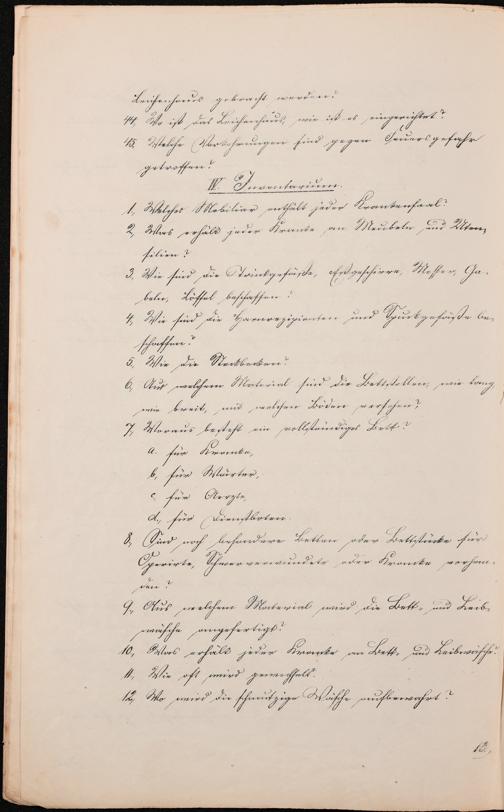 Leichenhaus gebracht werden?
44, Wo ist das Leichenhaus, wie ist es eingerichtet?
45, Welche Vorkehrungen sind gegen Feuersgefahr
getroffen?
IV. Inventarium.
1, Welches Mobiliar enthält jeder Krankensaal?
2, Was erhält jeder Kranke an Meubeln und Uten-
silien?
3, Wie sind die Trinkgefäße, Eßgeschirre, Messer, Ga-
beln, Löffel beschaffen?
4, Wie sind die Harnrezipienten und Spuckgefäße be-
schaffen?
5, Wie die Steckbecken?
6, Aus welchem Material sind die Bettstellen, wie lang
wie breit, mit welchen Böden versehen?
7, Woraus besteht ein vollständiges Bett?
a. für Kranke,
b, für Wärter,
c, für Aerzte,
d., für Dienstboten.
8, Sind noch besondere Betten oder Bettstücke für
Operirte, Schwerverwundete oder Kranke vorhan-
den?
9, Aus welchem Material wird die Bett- und Leib-
wäsche angefertigt?
10, Was erhält jeder Kranke an Bett- und Leibwäsche?
11, Wie oft wird gewechselt.
12, Wo wird die schmutzige Wäsche aufbewahrt?
13,